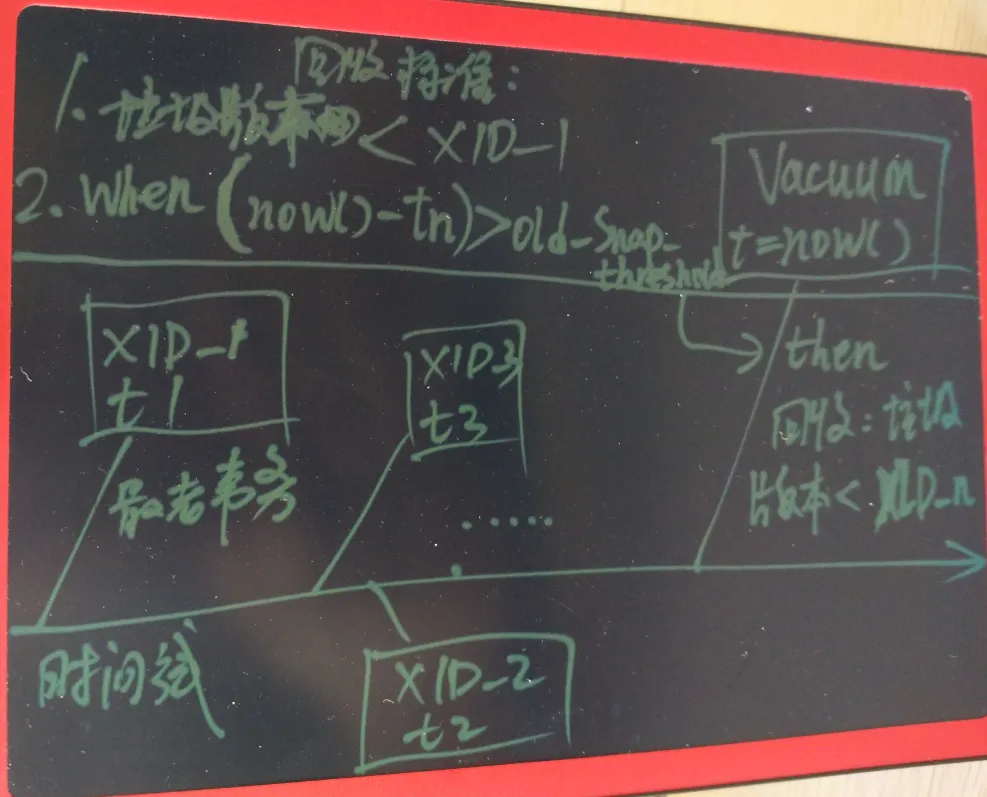 回收标准:
1. 垃圾版本的 < XID_1
2. When (now()-tn)>old_snap_
threshold
Vacuum
t=now()
XID_1
t1
最老事务
XID3
t3
......
then
回收:垃圾
版本< XID_n
时间线
XID_2
t2